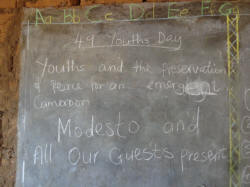 Aa Bb Cc Dd Ee Ff Gg
49 Youths Day
Youths and the preservation
of Peace for an emergent
Cameroon
Modesto and
All Our Guests present